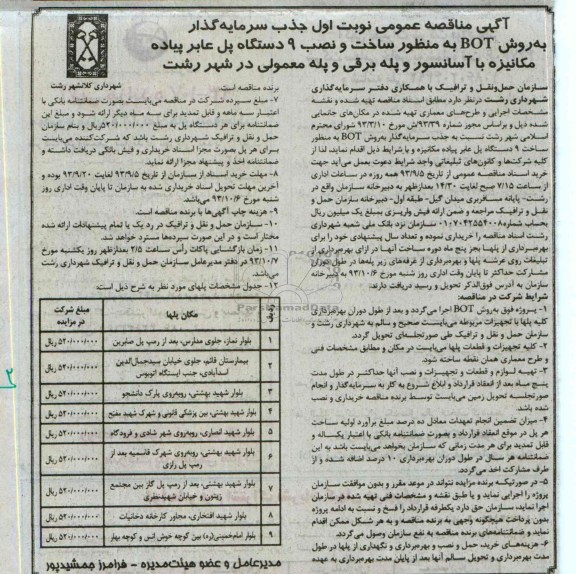 آگهی مناقصه عمومی نوبت اول جذب سرمایه‌گذار
به‌روش BOT به منظور ساخت و نصب ۹ دستگاه پل عابر پیاده
مکانیزه با آسانسور و پله برقی و پله معمولی در شهر رشت
شهرداری کلانشهر رشت
سازمان حمل‌ونقل و ترافیک با همکاری دفتر سرمایه‌گذاری
شهرداری رشت درنظر دارد مطابق اسناد مناقصه تهیه شده و نقشه
مشخصات اجرایی و طرح‌های معماری تهیه شده در مکان‌های جانمایی
شده ذیل و براساس مجوز شماره ۹۲۳۳۹/ش مورخ ۹۳/۳/۱۰ شورای محترم
اسلامی شهر رشت نسبت به جذب سرمایه‌گذار به‌روش BOT به‌منظور
ساخت ۹ دستگاه پل عابر پیاده مکانیزه، لذا با شرایط ذیل اقدام نماید، لذا از
کلیه شرکت‌ها و کانون‌های تبلیغاتی واجد شرایط دعوت بعمل می‌آید جهت
خرید اسناد مناقصه عمومی از تاریخ ۹۳/۹/۵ همه روزه در ساعات اداری
از ساعت ۷/۱۵ صبح لغایت ۱۴/۳۰ بعدازظهر به دبیرخانه سازمان واقع در
رشت- پایانه مسافربری میدان گیل- طبقه اول- دبیرخانه سازمان حمل و
نقل و ترافیک مراجعه و ضمن ارائه فیش واریزی بمبلغ یک میلیون ریال
بحساب شماره ۰۱۰۷۰۴۲۵۵۴۰۰۸ سازمان نزد بانک ملی شعبه شهرداری
رشت اسناد مناقصه را خریداری نموده و تعداد سال پیشنهادی خود را برای
بهره‌برداری از پلها بجز پنج ماه دوره ساخت آنها در ازای بهره‌برداری از
تبلیغات روی عرشه پلها و بهره‌برداری از غرفه‌های زیر پله‌ها در طول دوران
مشارکت حداکثر تا پایان وقت اداری روز شنبه مورخ ۹۳/۱۰/۶ به دبیرخانه
سازمان به آدرس فوق‌الذکر تحویل و رسید دریافت دارند:
شرایط شرکت در مناقصه:
۱- پروژه فوق به‌روش BOT اجرا می‌گردد و بعد از طول دوران بهره‌برداری
کلیه پلها با تجهیزات مربوطه می‌بایست صحیح و سالم به شهرداری رشت و
سازمان حمل و نقل و ترافیک طی صورتجلسه‌ای تحویل گردد.
۲- کلیه تجهیزات و قطعات پلها می‌بایست در مکان و مطابق مشخصات فنی
و طرح معماری همان نقطه ساخته شود.
۳- تهیه لوازم و قطعات و تجهیزات و نصب آنها حداکثر در طول مدت
پنج ماه بعد از انعقاد قرارداد و ابلاغ شروع به کار به سرمایه‌گذار و انجام
صورتجلسه تحویل زمین می‌بایست توسط برنده مناقصه خریداری و نصب
شده باشد.
۴- میزان تضمین انجام تعهدات معادل ده درصد مبلغ برآورد اولیه ساخت
هر پل در موقع انعقاد قرارداد و بصورت ضمانتنامه بانکی با اعتبار یکساله و
قابل تمدید برای هر مدت زمانی که سازمان بخواهد می‌بایست باشد به این
ضمانتنامه هر سال در طول دوران بهره‌برداری ۱۰ درصد اضافه شده و از
طرف مشارکت اخذ می‌گردد.
۵- در صورتیکه برنده مزایده نتواند در موعد مقرر و بدون موافقت سازمان
پروژه را اجرایی نماید و یا طبق نقشه و مشخصات فنی تهیه شده در سازمان
اجرا نماید، سازمان حق دارد یکطرفه قرارداد را فسخ و نسبت به ادامه پروژه
بدون پرداخت هیچگونه وجهی به برنده مناقصه و به هر شکل ممکن اقدام
نماید و ضمانتنامه‌های برنده مناقصه به نفع سازمان وصول می‌گردد.
۶- هزینه‌های خرید، حمل و نصب و بهره‌برداری و نگهداری از پلها در طول
مدت بهره‌برداری و تحویل سالم آنها بعد از پایان مدت بهره‌برداری به عهده
برنده مناقصه است.
۷- مبلغ سپرده شرکت در مناقصه می‌بایست بصورت ضمانتنامه بانکی با
اعتبار سه ماهه و قابل تمدید برای سه ماه دیگر ارائه شود و مبلغ این
ضمانتنامه برای هر دستگاه پل به مبلغ ۵۲۰/۰۰۰/۰۰۰ریال و بنام سازمان
حمل و نقل و ترافیک شهرداری رشت باشد که شرکت‌کننده می‌بایست
برای هر پل بصورت مجزا اسناد خریداری و فیش بانکی دریافت داشته و
ضمانتنامه اخذ و پیشنهاد مجزا ارائه نماید.
۸- مهلت خرید اسناد از سازمان از تاریخ ۹۳/۹/۵ لغایت ۹۳/۹/۲۰ بوده و
آخرین مهلت تحویل اسناد خریداری شده به سازمان تا پایان وقت اداری روز
شنبه مورخ ۹۳/۱۰/۶ می‌باشد.
۹- هزینه چاپ آگهی‌ها با برنده مناقصه است.
۱۰- سازمان حمل و نقل و ترافیک در رد یک یا تمام پیشنهادات ارائه شده
مختار است و در این صورت سپرده‌ها مسترد خواهد شد.
۱۱- زمان بازگشایی پاکات رأس ساعت ۲/۵ بعدازظهر روز یکشنبه مورخ
۹۳/۱۰/۷ در دفتر مدیرعامل سازمان حمل و نقل و ترافیک شهرداری رشت
می‌باشد.
۱۲- جدول مشخصات پلهای مورد نظر به شرح ذیل است:
ردیف مکان پلها مبلغ شرکت در مزایده
۱ بلوار نماز، جلوی مدارس، بعد از رمپ پل صابرین ۵۲۰/۰۰۰/۰۰۰ ریال
۲ بیمارستان قائم، جلوی خیابان سیدجمال‌الدین
اسدآبادی، جنب ایستگاه اتوبوس ۵۲۰/۰۰۰/۰۰۰ ریال
۳ بلوار شهید بهشتی، روبه‌روی پارک دانشجو ۵۲۰/۰۰۰/۰۰۰ ریال
۴ بلوار شهید بهشتی، بین پزشکی قانونی و شهرک شهید مفتح ۵۲۰/۰۰۰/۰۰۰ ریال
۵ بلوار شهید انصاری، روبه‌روی شهر شادی و فرودگاه ۵۲۰/۰۰۰/۰۰۰ ریال
۶ بلوار شهید بهشتی، روبه‌روی شهرک قاسمیه بعد از
رمپ پل رازی ۵۲۰/۰۰۰/۰۰۰ ریال
۷ بلوار شهید بهشتی، بعد از رمپ پل گاز بین مجتمع
زیتون و خیابان شهیدنظری ۵۲۰/۰۰۰/۰۰۰ ریال
۸ بلوار شهید افتخاری، مجاور کارخانه دخانیات ۵۲۰/۰۰۰/۰۰۰ ریال
۹ بلوار امام‌خمینی(ره) بین کوچه خوش انس و کوچه بهار ۵۲۰/۰۰۰/۰۰۰ ریال
مدیرعامل و عضو هیئت‌مدیره - فرامرز جمشیدپور